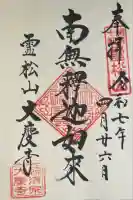 奉拝
令和七年
四月廿六日
南無釋迦如來
霊松山
大慶寺